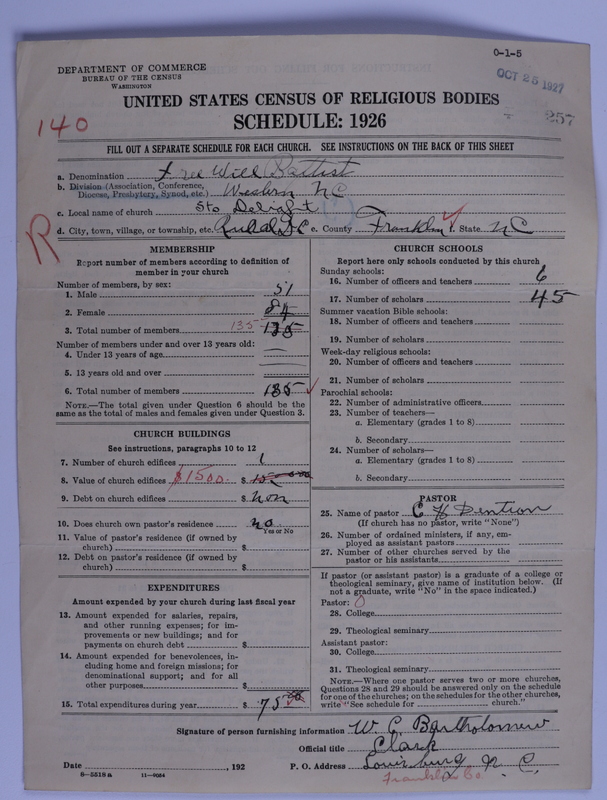 0-1-5
DEPARTMENT OF COMMERCE
BUREAU OF THE CENSUS
WASHINGTON
OCT 25 1927
257
UNITED STATES CENSUS OF RELIGIOUS BODIES
SCHEDULE: 1926
140
FILL OUT A SEPARATE SCHEDULE FOR EACH CHURCH. SEE INSTRUCTIONS ON THE BACK OF THIS SHEET
a. Denomination Free Will Baptist
b. Division (Association, Conference, Diocese, Presbytery, Synod, etc.) Western NC
c. Local name of church Sts Delight
d. City, town, village, or township, etc. Rural e. County Franklin f. State NC
R
MEMBERSHIP
Report number of members according to definition of
member in your church
Number of members, by sex:
1. Male 51
2. Female 84
3. Total number of members 135 135
Number of members under and over 13 years old:
4. Under 13 years of age
5. 13 years old and over
6. Total number of members 135
NOTE.—The total given under Question 6 should be the
same as the total of males and females given under Question 3.
CHURCH BUILDINGS
See instructions, paragraphs 10 to 12
7. Number of church edifices 1
8. Value of church edifices $1500. $
9. Debt on church edifices $ non
10. Does church own pastor's residence no
Yes or No
11. Value of pastor's residence (if owned by
church) $
12. Debt on pastor's residence (if owned by
church) $
EXPENDITURES
Amount expended by your church during last fiscal year
13. Amount expended for salaries, repairs,
and other running expenses; for im-
provements or new buildings; and for
payments on church debt $
14. Amount expended for benevolences, in-
cluding home and foreign missions; for
denominational support; and for all
other purposes $
15. Total expenditures during year $ 75 00
CHURCH SCHOOLS
Report here only schools conducted by this church
Sunday schools:
16. Number of officers and teachers 6
17. Number of scholars 45
Summer vacation Bible schools:
18. Number of officers and teachers
19. Number of scholars
Week-day religious schools:
20. Number of officers and teachers
21. Number of scholars
Parochial schools:
22. Number of administrative officers
23. Number of teachers—
a. Elementary (grades 1 to 8)
b. Secondary
24. Number of scholars—
a. Elementary (grades 1 to 8)
b. Secondary
PASTOR
25. Name of pastor C H Dention
(If church has no pastor, write "None")
26. Number of ordained ministers, if any, em-
ployed as assistant pastors
27. Number of other churches served by the
pastor or his assistants
If pastor (or assistant pastor) is a graduate of a college or
theological seminary, give name of institution below. (If
not a graduate, write "No" in the space indicated.)
Pastor: 0
28. College
29. Theological seminary
Assistant pastor:
30. College
31. Theological seminary
NOTE.—Where one pastor serves two or more churches,
Questions 28 and 29 should be answered only on the schedule
for one of the churches; on the schedules for the other churches,
write "See schedule for church."
Signature of person furnishing information W. C. Bartholomew
Official title Clark
Date , 192 P. O. Address Louisburg N. C.
8—5518a 11—9084
Franklin Co